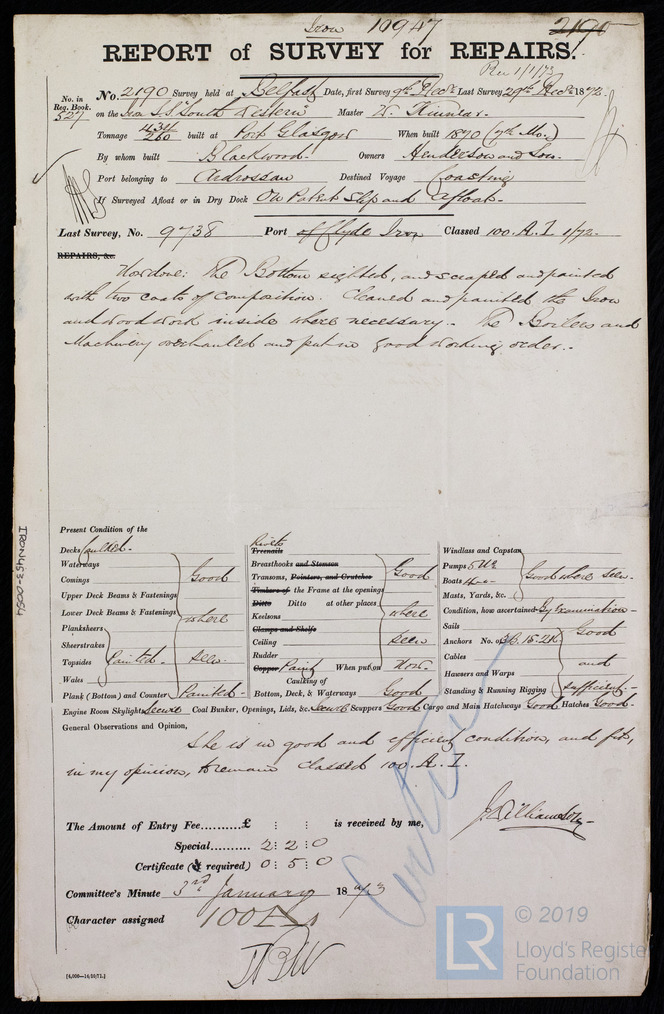 Iron 10947 2190
REPORT of SURVEY for REPAIRS.
Rec 1/1/73
No. in Reg. Book. 527
No. 2190 Survey held at Belfast Date, first Survey 9th Decr Last Survey 29th Decr 1872
on the Iron S.S. "South Western" Master W. Kinnear
Tonnage 431 260 built at Port Glasgow When built 1870 (7th Mo.)
By whom built Blackwood Owners Henderson and Son.
Port belonging to Ardrossan Destined Voyage Coasting
If Surveyed Afloat or in Dry Dock On Patent Slip and Afloat.
Last Survey, No. 9738 Port of Clyde Iron Classed 100. A. I. 1/72
REPAIRS, &c.
Now done: The Bottom sighted, and scraped and painted
with two coats of composition. Cleaned and painted the Iron
and wood work inside where necessary. The Boilers and
Machinery overhauled and put in good working order.
Present Condition of the
Decks Caulked.
Waterways
Comings
Upper Deck Beams & Fastenings
Lower Deck Beams & Fastenings
Good where seen.
Planksheers
Sheerstrakes
Topsides
Wales
Painted.
Plank (Bottom) and Counter Painted
Rivets
Treenails
Breasthooks and Stemson
Transoms, Pointers, and Crutches
Timbers of the Frame at the openings
Ditto Ditto at other places
Keelsons
Clamps and Shelfs
Ceiling
Rudder
Good where seen
Copper Paint When put on Now.
Caulking of
Bottom, Deck, & Waterways Good
Windlass and Capstan
Pumps
Boats
Masts, Yards, &c.
Good where seen.
Condition, how ascertained By Examination
Sails
Anchors No. of 3B. 1S. 2K
Cables
Hawsers and Warps
Standing & Running Rigging
Good and sufficient.
Engine Room Skylights Secure Coal Bunker, Openings, Lids, &c. Secure Scuppers Good Cargo and Main Hatchways Good Hatches Good.
General Observations and Opinion,
She is in good and efficient condition, and fit,
in my opinion, to remain Classed 100. A. I.
J. Williamson
The Amount of Entry Fee..........£ : : is received by me,
Special.......... 2 : 2 : 0
Certificate (if required) 0 : 5 : 0
Committee's Minute 3rd January 1873
Character assigned 100
IRON453-0054
© 2019
LR
Lloyd's Register
Foundation